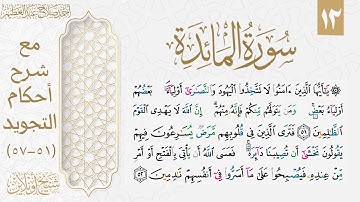 ١٣
سورة المائدة
مع
شرح
أحكام
التجويد
(٥١-٥٧)
يَٰٓأَيُّهَا ٱلَّذِينَ ءَامَنُوا۟ لَا تَتَّخِذُوا۟ ٱلْيَهُودَ وَٱلنَّصَٰرَىٰٓ أَوْلِيَآءَ ۘ بَعْضُهُمْ
أَوْلِيَآءُ بَعْضٍ ۚ وَمَن يَتَوَلَّهُم مِّنكُمْ فَإِنَّهُۥ مِنْهُمْ ۗ إِنَّ ٱللَّهَ لَا يَهْدِى ٱلْقَوْمَ
ٱلظَّٰلِمِينَ ٥١ فَتَرَى ٱلَّذِينَ فِى قُلُوبِهِم مَّرَضٌ يُسَٰرِعُونَ فِيهِمْ
يَقُولُونَ نَخْشَىٰٓ أَن تُصِيبَنَا دَآئِرَةٌ ۚ فَعَسَى ٱللَّهُ أَن يَأْتِىَ بِٱلْفَتْحِ أَوْ أَمْرٍ
مِّنْ عِندِهِۦ فَيُصْبِحُوا۟ عَلَىٰ مَآ أَسَرُّوا۟ فِىٓ أَنفُسِهِمْ نَٰدِمِينَ ٥٢